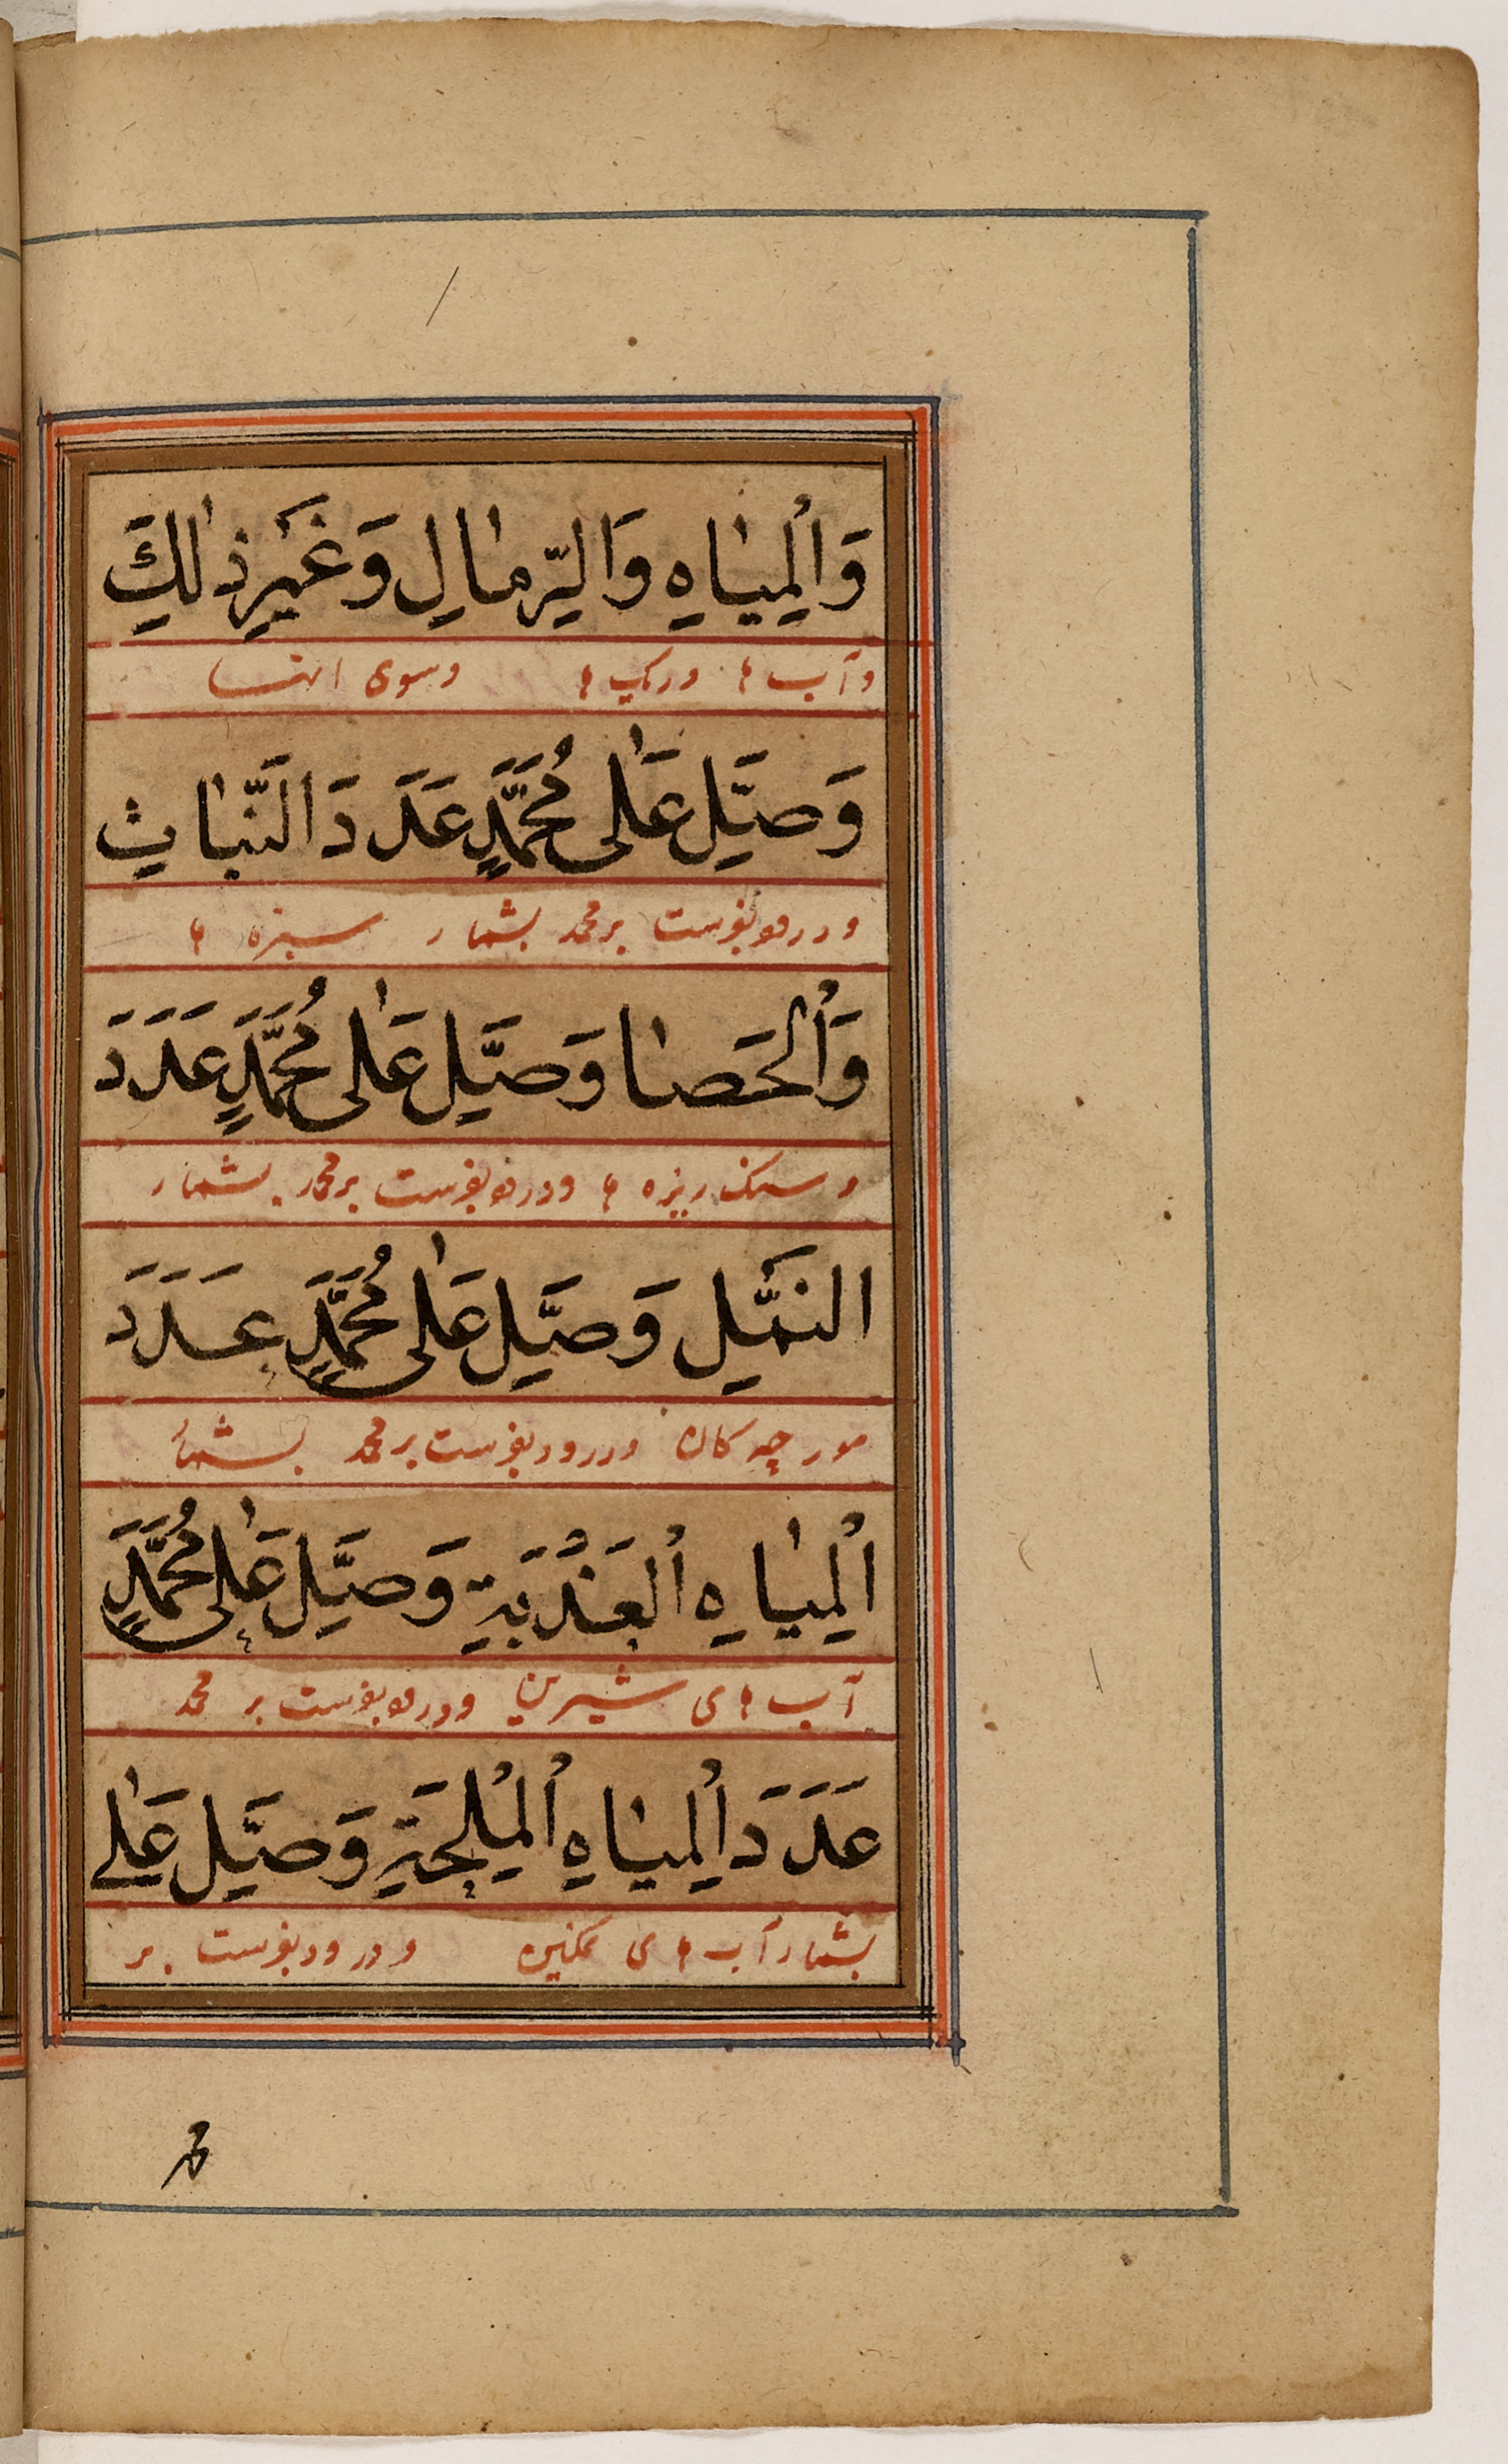 وَالْمِیٰاهِ وَالرِّمٰالِ وَغَیْرِ ذٰلِکَ
وآب ها وریک ها وسوی اینها
وَصَلِّ عَلٰی مُحَمَّدٍ عَدَدَ النَّبٰاتِ
ودرود بفرست بر محمد بشمار سبزه ها
وَالْحَصٰا وَصَلِّ عَلٰی مُحَمَّدٍ عَدَدَ
و سنک ریزه ها ودرود بفرست بر محمد بشمار
النَّمْلِ وَصَلِّ عَلٰی مُحَمَّدٍ عَدَدَ
مورچه کان ودرود بفرست بر محمد بشمار
الْمِیٰاهِ الْعَذْبَةِ وَصَلِّ عَلٰی مُحَمَّدٍ
آب های شیرین ودرود بفرست بر محمد
عَدَدَ الْمِیٰاهِ الْمِلْحَةِ وَصَلِّ عَلٰی
بشمار آب های نمکین ودرود بفرست بر
محمد